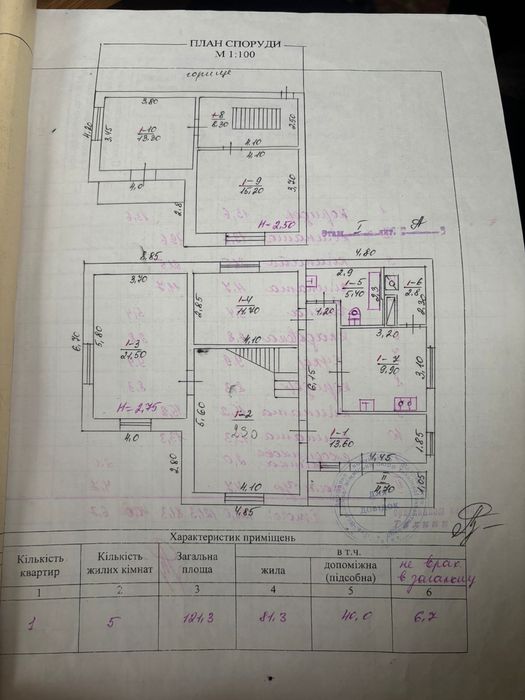 ПЛАН СПОРУДИ
М 1:100
горище
3,80
1-10
13.30
3,45
4,20
4,0
1-8
8.30
2,50
4.10
4.10
1-9
15,20
3,70
2.8
H=2,50
I
A
8,85
4,80
3,70
1-3
21,50
5,80
6,70
H=2,75
4,0
2,80
2,85
1-4
11.70
4,10
1-2
23.0
5,60
4,10
4,85
6,15
1,20
2.9
1-5
5,40
2,3
1-6
2.8
2,30
3,20
1-7
9,90
3,10
1-1
13,60
1,85
4,45
II
4,70
1,05
Характеристик приміщень
Кількість квартир
Кількість жилих кімнат
Загальна площа
в т.ч.
жила
допоміжна (підсобна)
не врах. в загальну
1 2 3 4 5 6
1 5 121,3 81,3 40,0 6,7